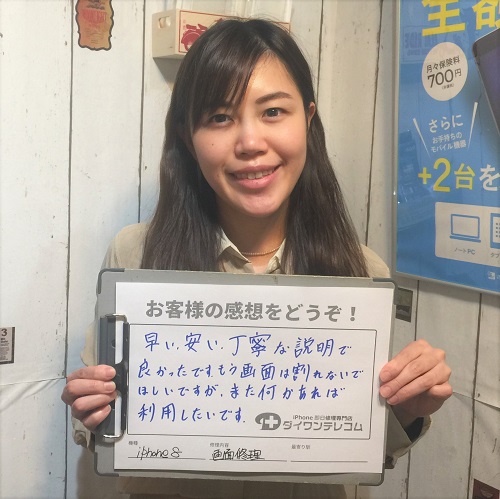 月々保険料
700円
さらに
お手持ちの
モバイル機器
+2台を
ノートPC
お客様の感想をどうぞ！
早い、安い、丁寧な説明で
良かったです。もう画面は割れないで
ほしいですが、また何かあれば
利用したいです。
iPhone 即日修理専門店
ダイワンテレコム
機種
iphone 8
修理内容
画面修理
最寄り駅